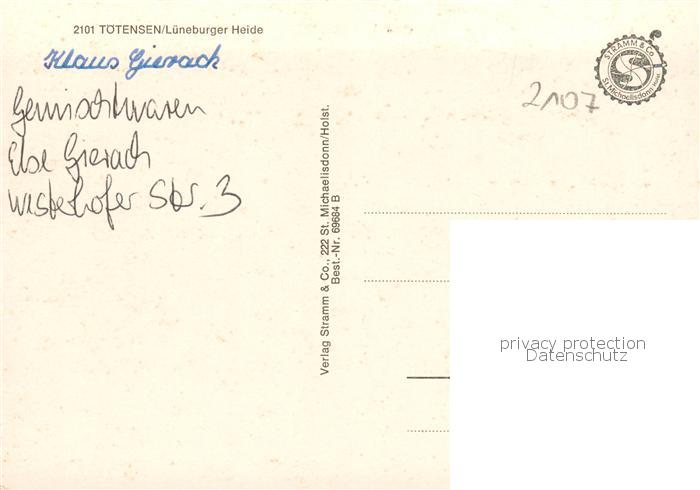 2101 TÖTENSEN/Lüneburger Heide
Klaus Gierach
Gemischtwaren
Else Gierach
Westerhofer Str. 3
Verlag Stramm & Co., 222 St. Michaelisdonn/Holst.
Best.-Nr. 69684 B
2107
STRAMM & Co
St. Michaelisdonn Holst.
privacy protection
Datenschutz